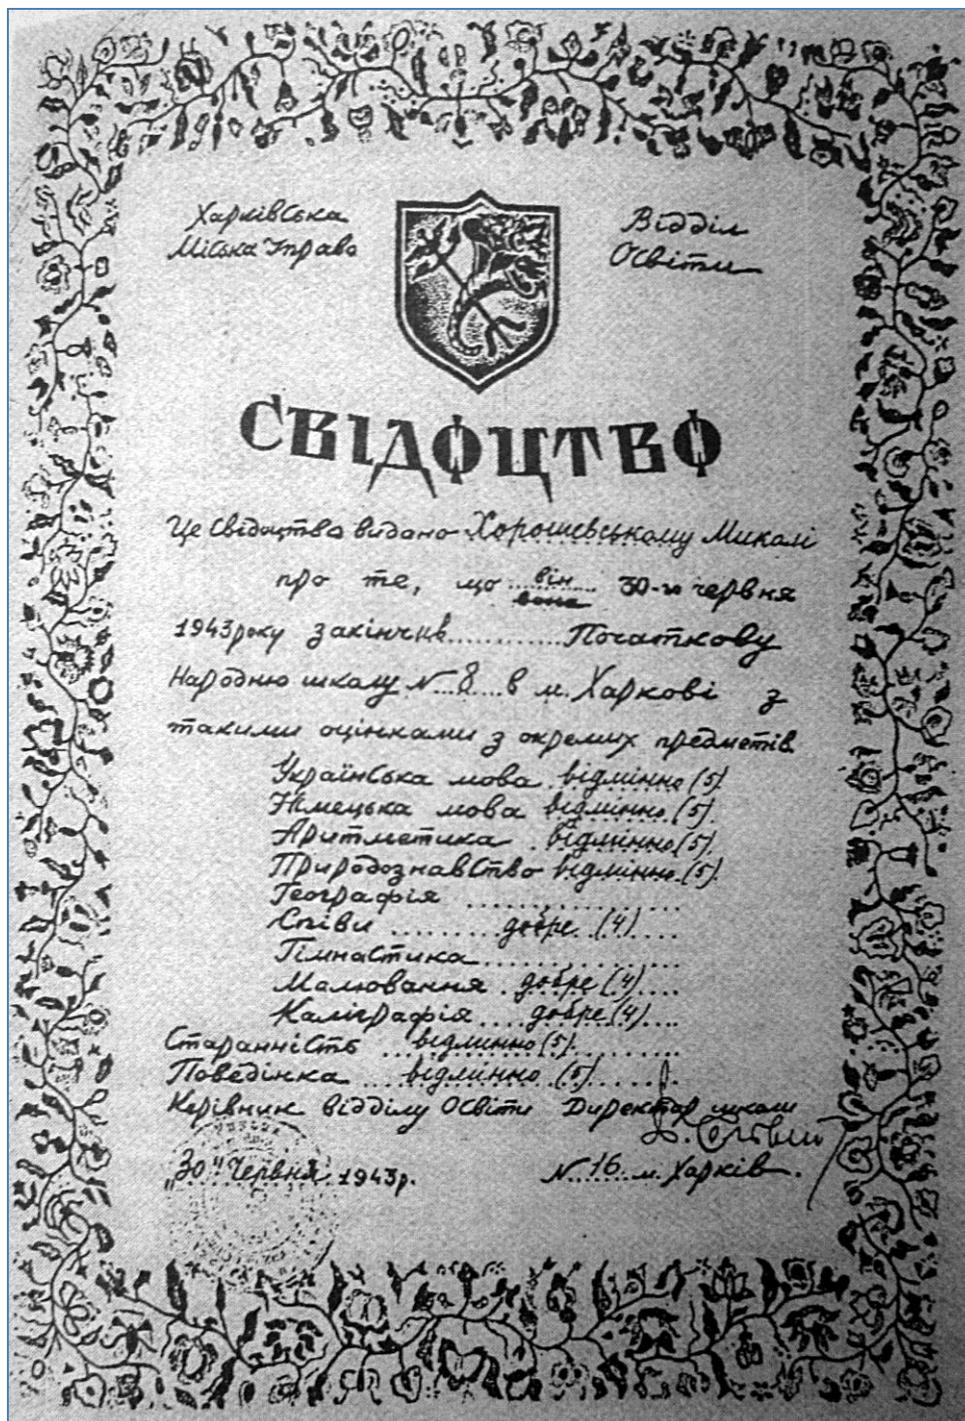 Харківська
Міська Управа
Відділ
Освіти
СВІДОЦТВО
Це свідоцтво видано Хорошевському Миколі
про те, що він 30-го червня
вона
1943 року закінчив............Початкову
Народню школу №..8...в м. Харкові з
такими оцінками з окремих предметів
Українська мова відмінно (5)
Німецька мова відмінно (5)
Аритметика відмінно (5)
Природознавство відмінно (5)
Географія ................
Співи .........добре (4)....
Гімнастика................
Малювання .добре (4)....
Каліграфія ....добре (4)....
Старанність ...відмінно (5)..........
Поведінка ....відмінно (5)......
Керівник відділу Освіти Директор школи
„30" Червня 1943р. №..16...м. Харків.